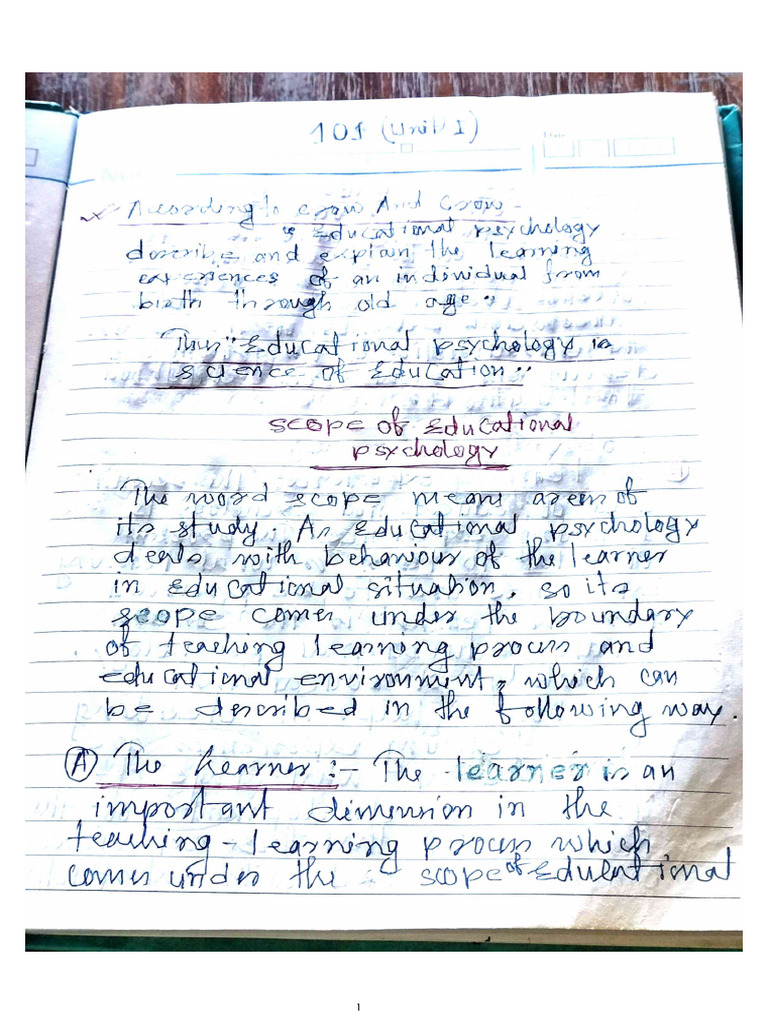 101 (Unit I)
Date
According to Crow And Crow -
" Educational psychology
describe and explain the learning
experiences of an individual from
birth through old age."
Thus "Educational psychology is
science of Education"
Scope of Educational
psychology
The word scope means areas of
its study. As Educational psychology
deals with behaviour of the learner
in Educational situation, so its
scope comes under the boundary
of teaching learning process and
educational environment, which can
be described in the following way.
(A) The Learner :- The learner is an
important dimension in the
teaching-learning process which
comes under the scope of Educational
1